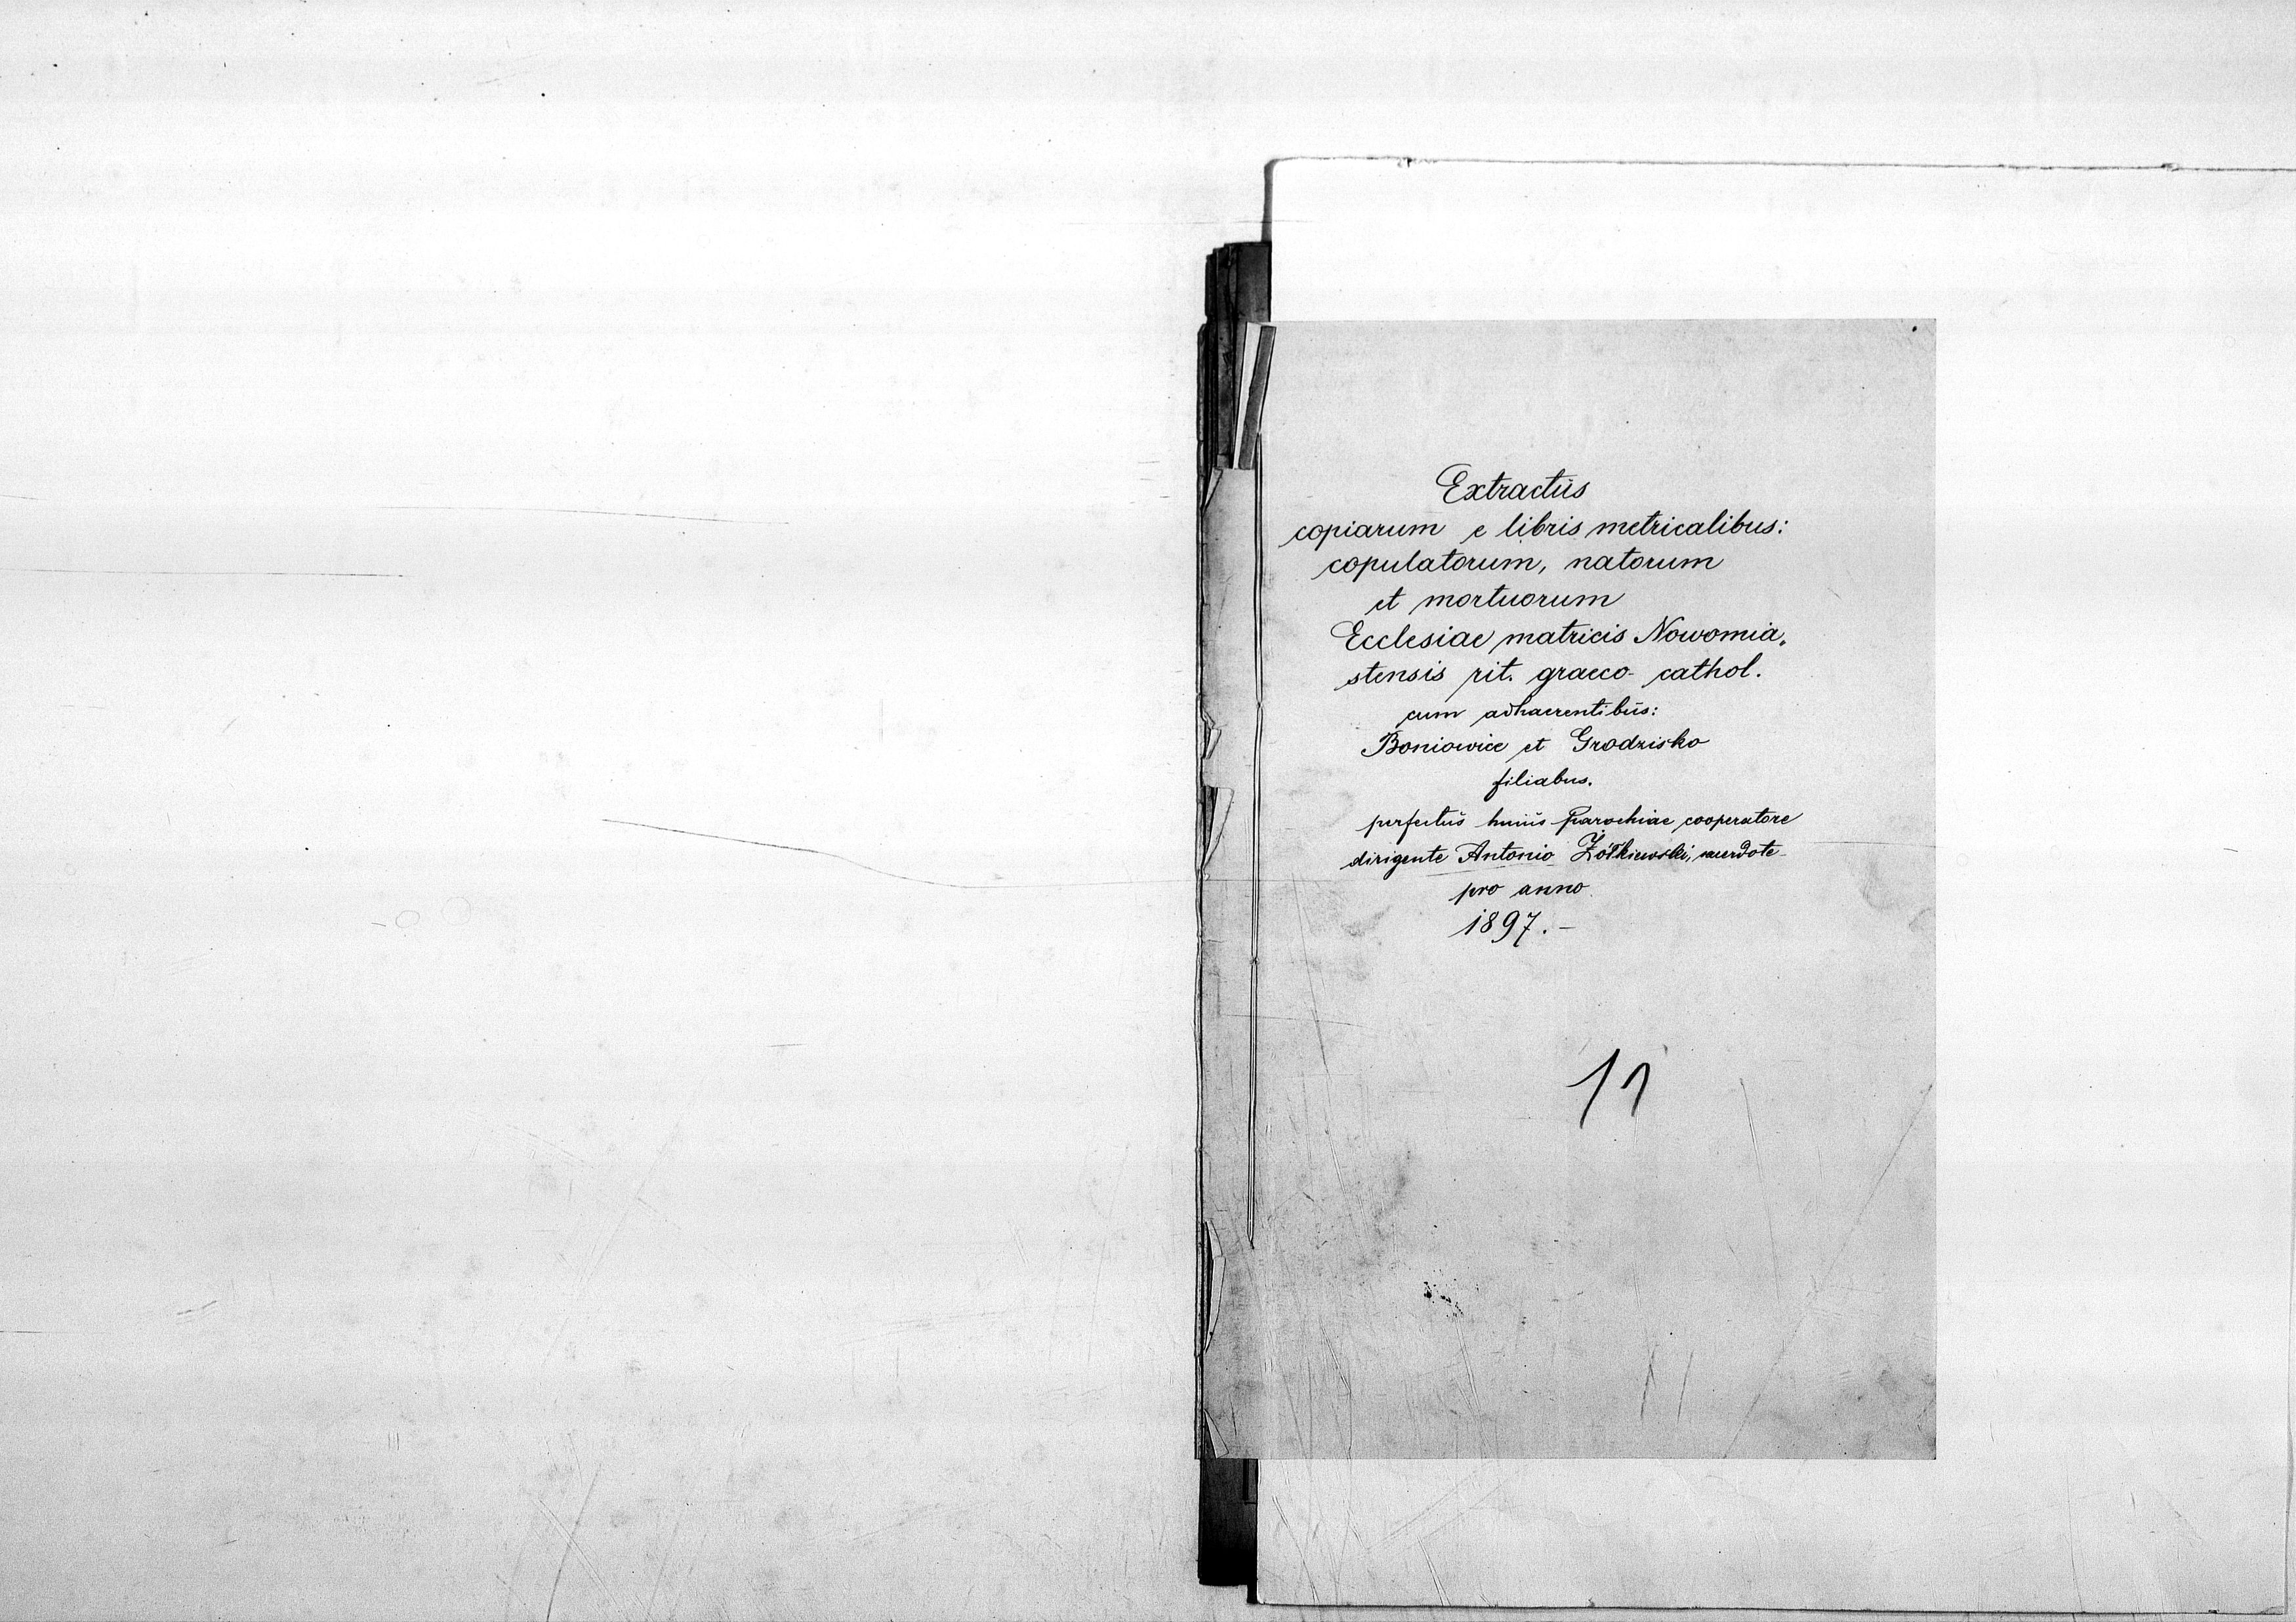 Extractus
copiarum e libris metricalibus:
copulatorum, natorum
et mortuorum
Ecclesiae matricis Nowomia-
stensis rit. graeco-cathol.
cum adhaerentibus:
Boniowice et Grodzisko
filiabus.
perfectus huius Parochiae cooperatore
dirigente Antonio Żołkiewski, sacerdote
pro anno
1897.-
11